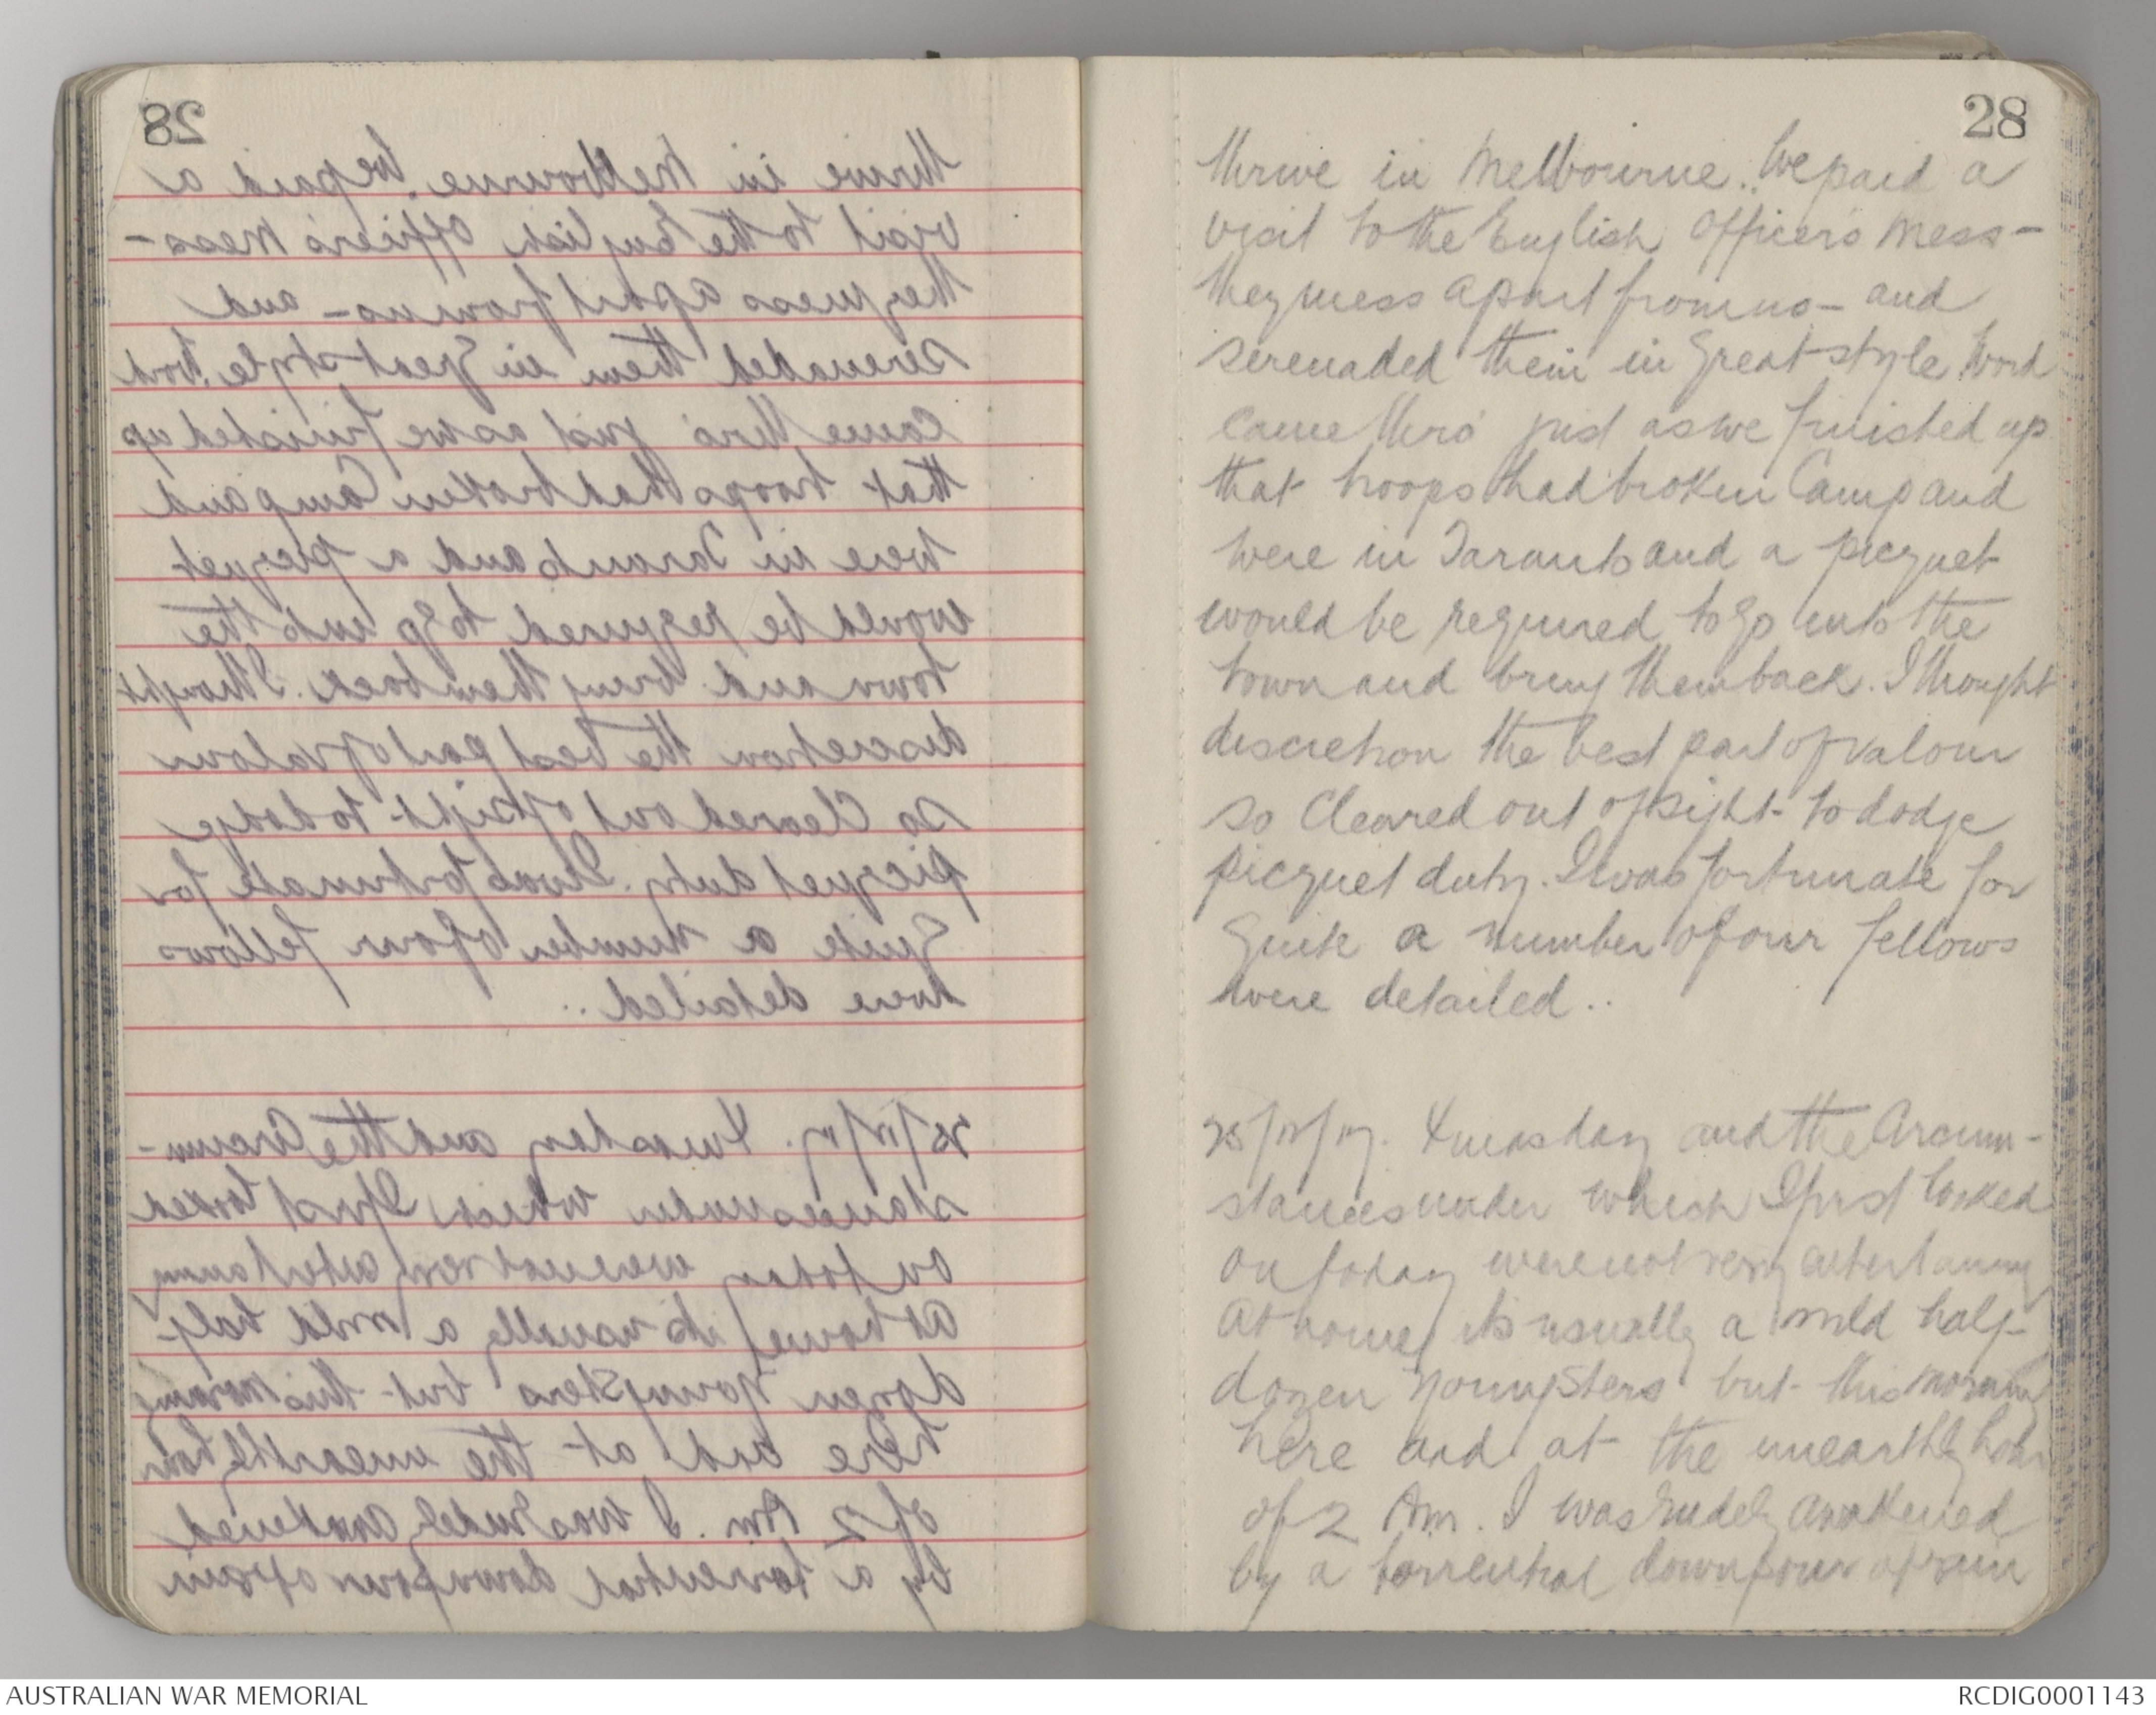 28
thrive in Melbourne. We paid a
visit to the English Officers Mess -
they mess apart from us - and
serenaded them in great style. Word
came thro' just as we finished up
that troops had broken Camp and
were in Taranto and a picquet
would be required to go into the
town and bring them back. I thought
discretion the best part of valour
so cleared out of sight to dodge
picquet duty. I was fortunate for
quite a number of our fellows
were detailed..
25/12/17. Xmas day and the Circum-
stances under which I first looked
on today were not very entertaining
At home its usually a mild half-
dozen youngsters but this morning
here and at the unearthly hour
of 2 Am. I was rudely awakened
by a torrential downpour of rain
28
AUSTRALIAN WAR MEMORIAL
RCDIG0001143